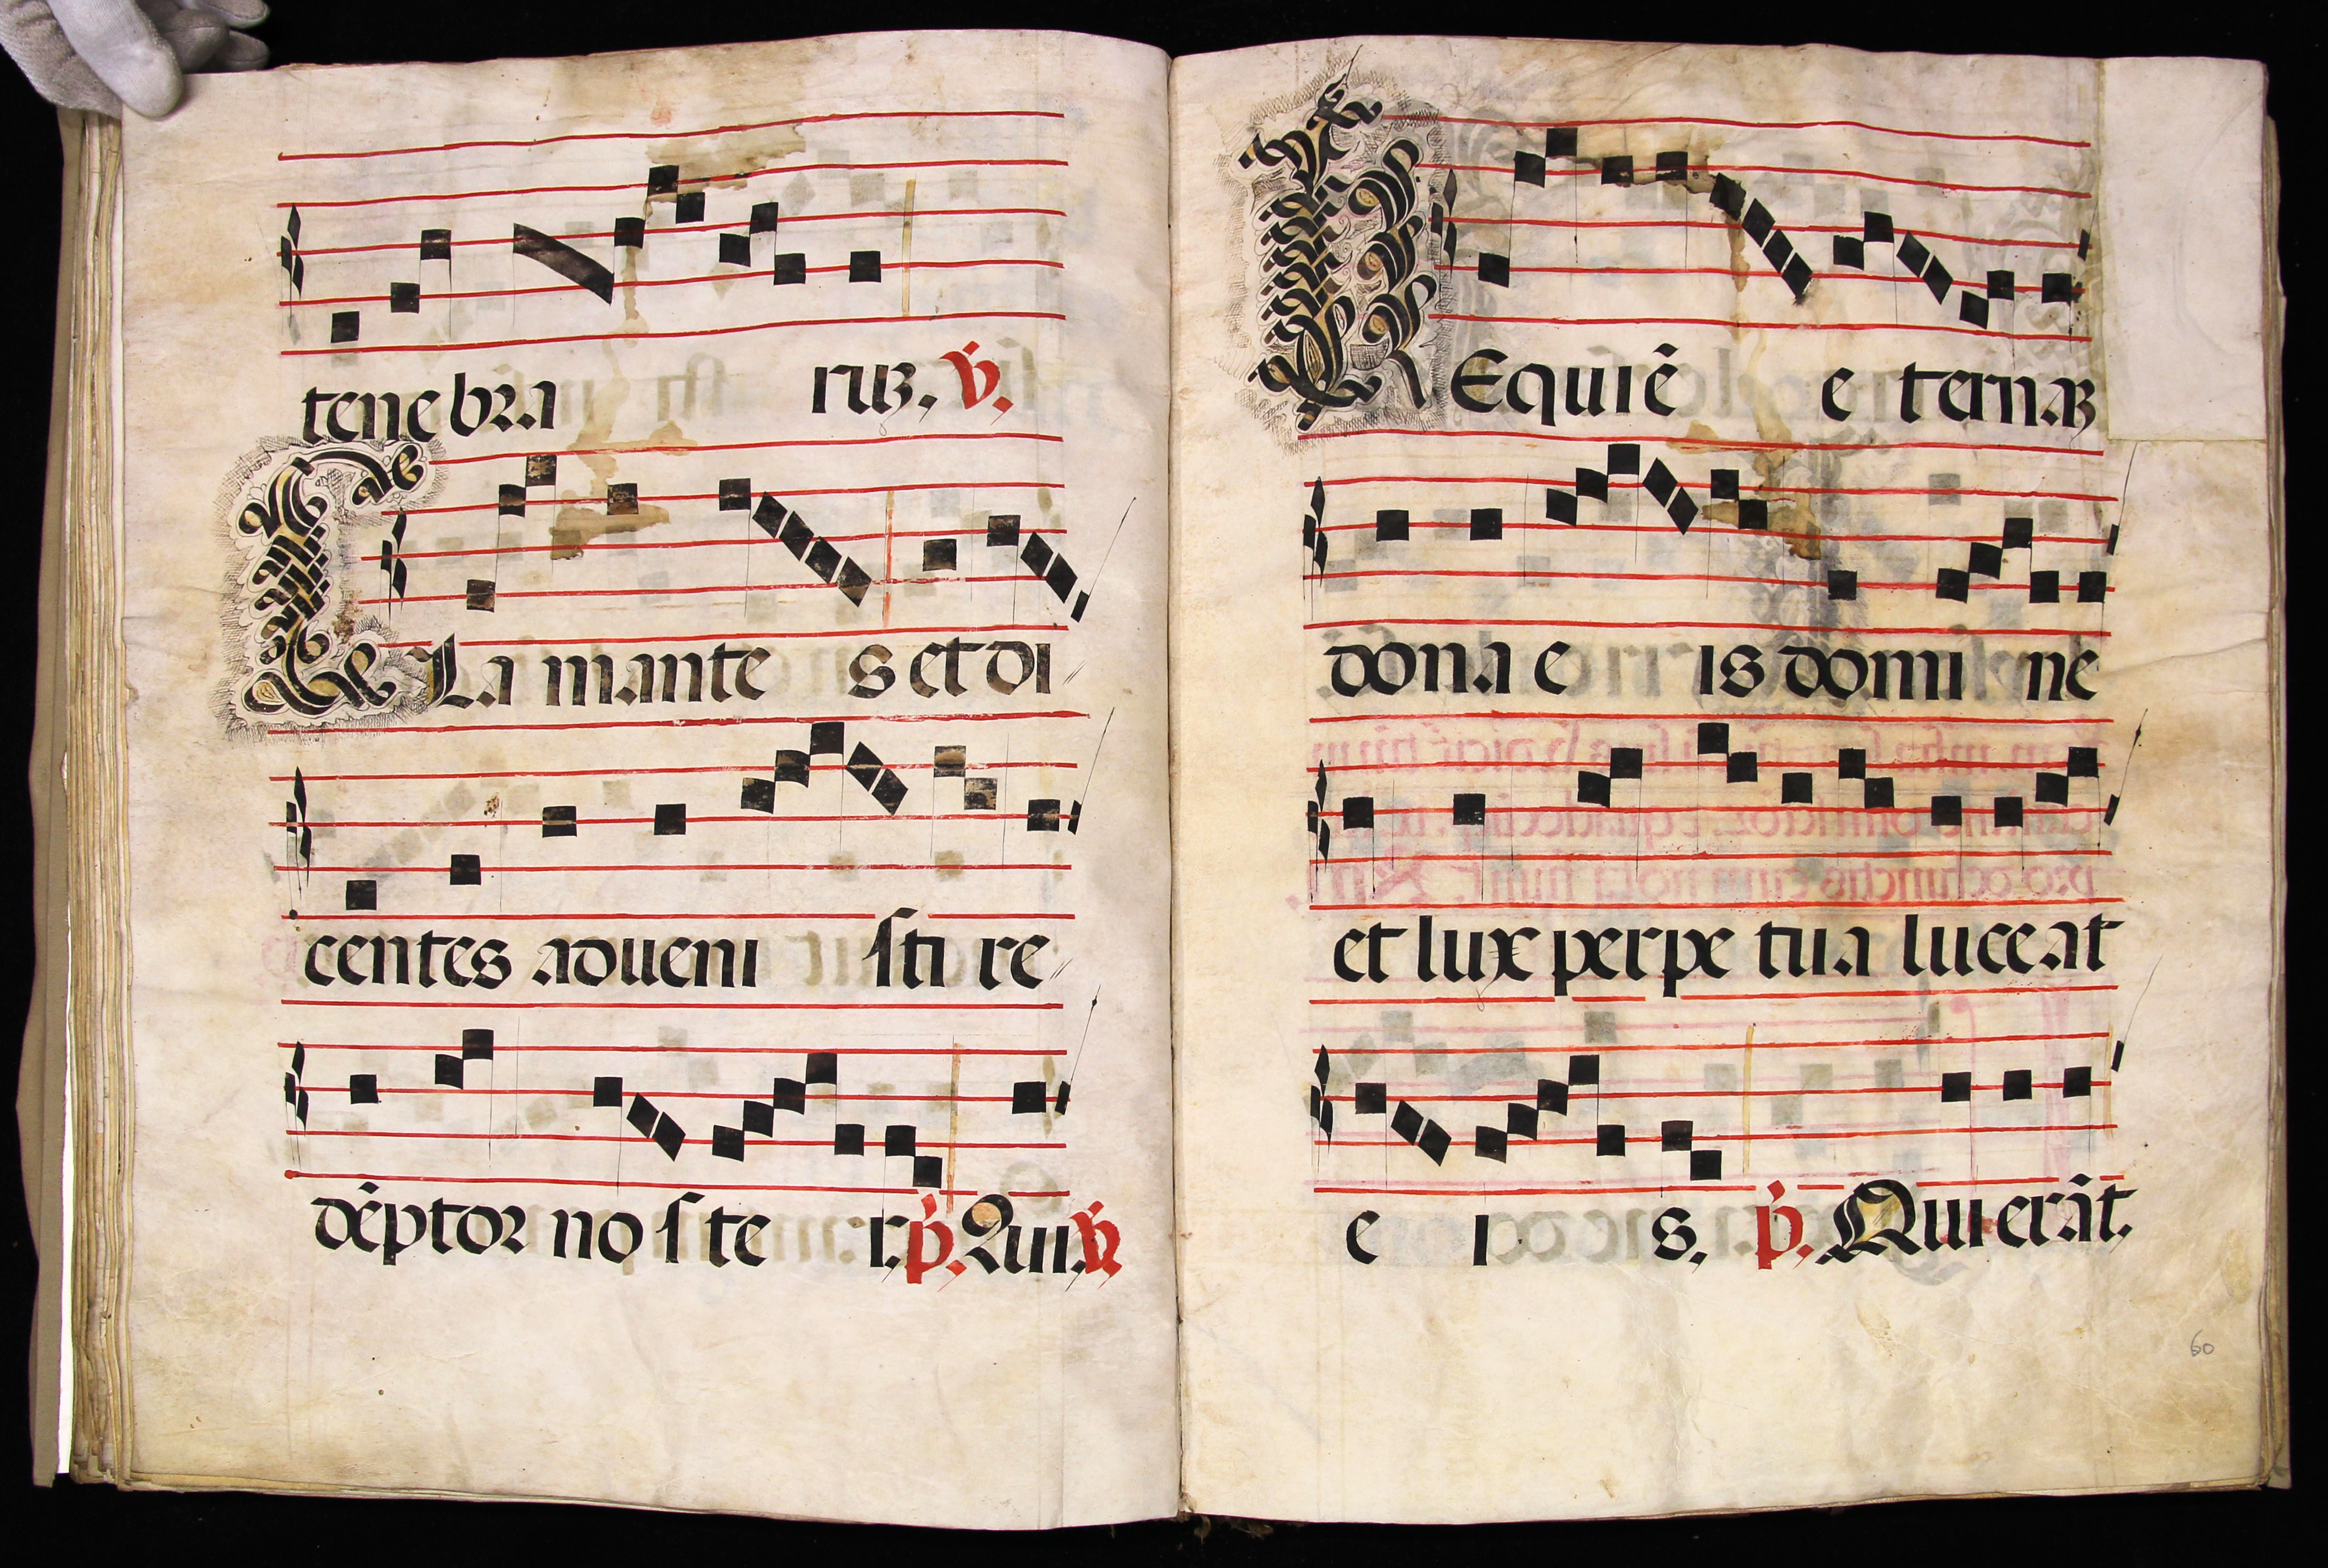 tenebra ruꝫ. ℣.
CLamante s et di
centes adueni sti re
déptor no ste r. p̄. Qui. ℣.
REquiē e ternaꝫ
dona e is domi ne
et lux perpe tua luceat
e i s. p̄. Qui erāt.
60